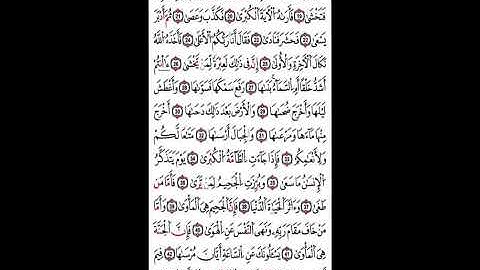 فَتَخْشَىٰ ١٩ فَأَرَىٰهُ ٱلْـَٔايَةَ ٱلْكُبْرَىٰ ٢٠ فَكَذَّبَ وَعَصَىٰ ٢١ ثُمَّ أَدْبَرَ
يَسْعَىٰ ٢٢ فَحَشَرَ فَنَادَىٰ ٢٣ فَقَالَ أَنَا۠ رَبُّكُمُ ٱلْأَعْلَىٰ ٢٤ فَأَخَذَهُ ٱللَّهُ
نَكَالَ ٱلْـَٔاخِرَةِ وَٱلْأُولَىٰٓ ٢٥ إِنَّ فِى ذَٰلِكَ لَعِبْرَةً لِّمَن يَخْشَىٰٓ ٢٦ ءَأَنتُمْ
أَشَدُّ خَلْقًا أَمِ ٱلسَّمَآءُ بَنَىٰهَا ٢٧ رَفَعَ سَمْكَهَا فَسَوَّىٰهَا ٢٨ وَأَغْطَشَ
لَيْلَهَا وَأَخْرَجَ ضُحَىٰهَا ٢٩ وَٱلْأَرْضَ بَعْدَ ذَٰلِكَ دَحَىٰهَآ ٣٠ أَخْرَجَ
مِنْهَا مَآءَهَا وَمَرْعَىٰهَا ٣١ وَٱلْجِبَالَ أَرْسَىٰهَا ٣٢ مَتَٰعًا لَّكُمْ
وَلِأَنْعَٰمِكُمْ ٣٣ فَإِذَا جَآءَتِ ٱلطَّآمَّةُ ٱلْكُبْرَىٰ ٣٤ يَوْمَ يَتَذَكَّرُ
ٱلْإِنسَٰنُ مَا سَعَىٰ ٣٥ وَبُرِّزَتِ ٱلْجَحِيمُ لِمَن يَرَىٰ ٣٦ فَأَمَّا مَن
طَغَىٰ ٣٧ وَءَاثَرَ ٱلْحَيَوٰةَ ٱلدُّنْيَا ٣٨ فَإِنَّ ٱلْجَحِيمَ هِىَ ٱلْمَأْوَىٰ ٣٩ وَأَمَّا
مَنْ خَافَ مَقَامَ رَبِّهِۦ وَنَهَى ٱلنَّفْسَ عَنِ ٱلْهَوَىٰ ٤٠ فَإِنَّ ٱلْجَنَّةَ
هِىَ ٱلْمَأْوَىٰ ٤١ يَسْـَٔلُونَكَ عَنِ ٱلسَّاعَةِ أَيَّانَ مُرْسَىٰهَا ٤٢ فِيمَ